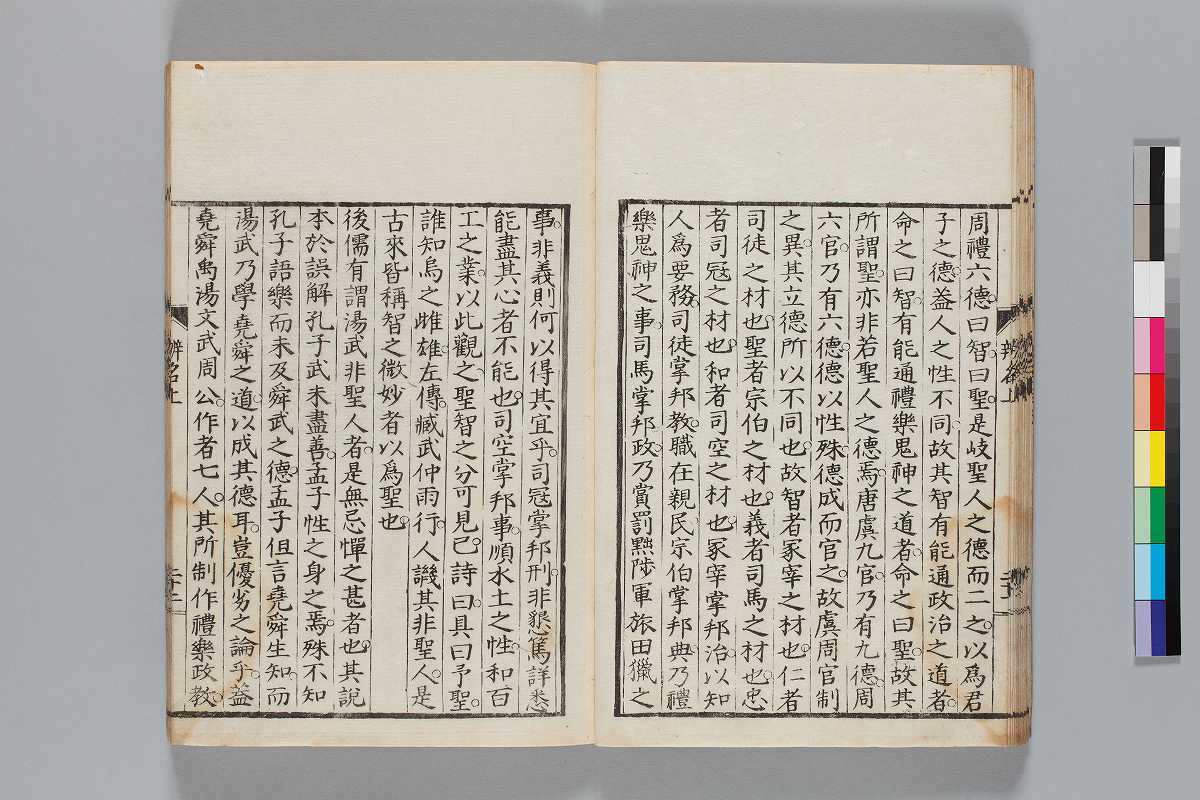 周禮六德。曰智曰聖。是岐聖人之德而二之。以爲君
子之德。益人之性不同。故其智有能通政治之道者。
命之曰智。有能通禮樂鬼神之道者。命之曰聖。故其
所謂聖。亦非若聖人之德焉。唐虞九官。乃有九德。周
六官。乃有六德。德以性殊。德成而官之。故虞周官制
之異。其立德所以不同也。故智者冢宰之材也。仁者
司徒之材也。聖者宗伯之材也。義者司馬之材也。忠
者司冦之材也。和者司空之材也。冢宰掌邦治。以知
人爲要務。司徒掌邦教。職在親民。宗伯掌邦典。乃禮
樂鬼神之事。司馬掌邦政。乃賞罰黜陟軍旅田獵之
事。非義則何以得其宜乎。司冦掌邦刑。非懇篤詳悉
能盡其心者不能也。司空掌邦事。順水土之性。和百
工之業。以此觀之。聖智之分可見已。詩曰具曰予聖。
誰知烏之雌雄。左傳。臧武仲雨行。人譏其非聖人。是
古來皆稱智之微妙者以爲聖也。
後儒有謂湯武非聖人者。是無忌憚之甚者也。其說
本於誤解孔子武未盡善。孟子性之身之焉。殊不知
孔子語樂而未及舜武之德。孟子但言堯舜生知。而
湯武乃學堯舜之道。以成其德耳。豈優劣之論乎。益
堯舜禹湯文武周公。作者七人。其所制作禮樂政教。
辨名上
二十二
辨名上